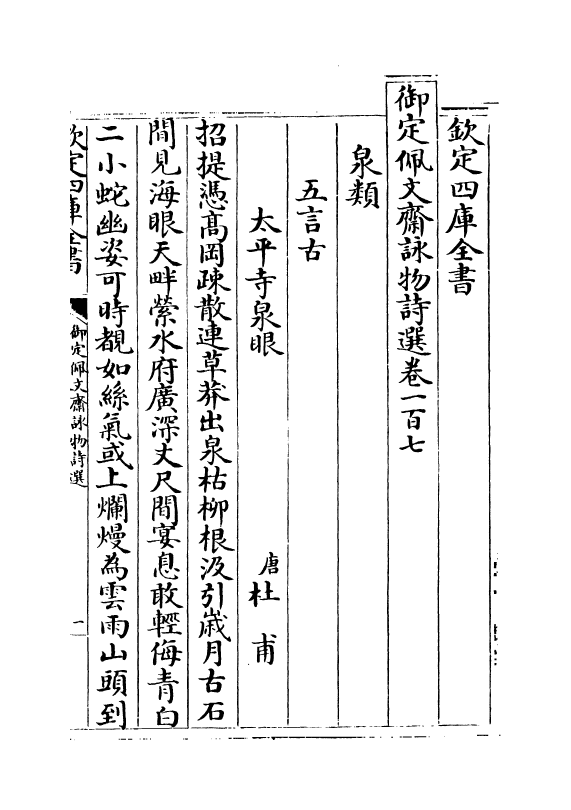 欽定四庫全書
御定佩文齋詠物詩選卷一百七
泉類
五言古
太平寺泉眼 唐杜甫
招提憑髙岡疎散連草莽出泉枯柳根汲引嵗月古石
間見海眼天畔縈水府廣深丈尺間宴息敢輕侮青白
二小蛇幽姿可時覩如絲氣或上爛熳為雲雨山頭到
欽定四庫全書
御定佩文齋詠物詩選
一